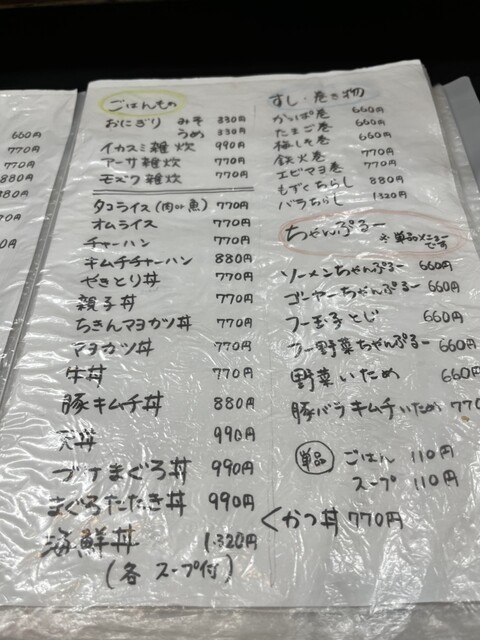 660円
770円
770円
880円
880円
770円
0円
ごはんもの
おにぎり みそ 330円
うめ 330円
イカスミ雑炊 990円
アーサ雑炊 770円
モズク雑炊 770円
タコライス(肉or魚) 770円
オムライス 770円
チャーハン 770円
キムチチャーハン 880円
やきとり丼 770円
親子丼 770円
ちきんマヨカツ丼 770円
マヨカツ丼 770円
牛丼 770円
豚キムチ丼 880円
天丼 990円
づけまぐろ丼 990円
まぐろたたき丼 990円
海鮮丼 1.320円
(各 スープ付)
すし・巻き物
かっぱ巻 660円
たまご巻 660円
梅しそ巻 660円
鉄火巻 770円
エビマヨ巻 770円
もずくちらし 880円
バラちらし 1.320円
ちゃんぷるー ※単品メニューです
ソーメンちゃんぷるー 660円
ゴーヤーちゃんぷるー 660円
フー玉子とじ 660円
フー野菜ちゃんぷるー 660円
野菜いため 660円
豚バラキムチいため 770
単品 ごはん 110円
スープ 110円
くかつ丼 770円